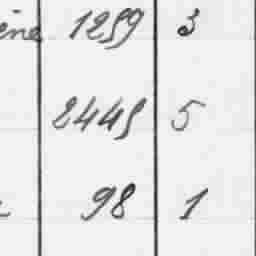 ène 1259 3
2445 5
98 1